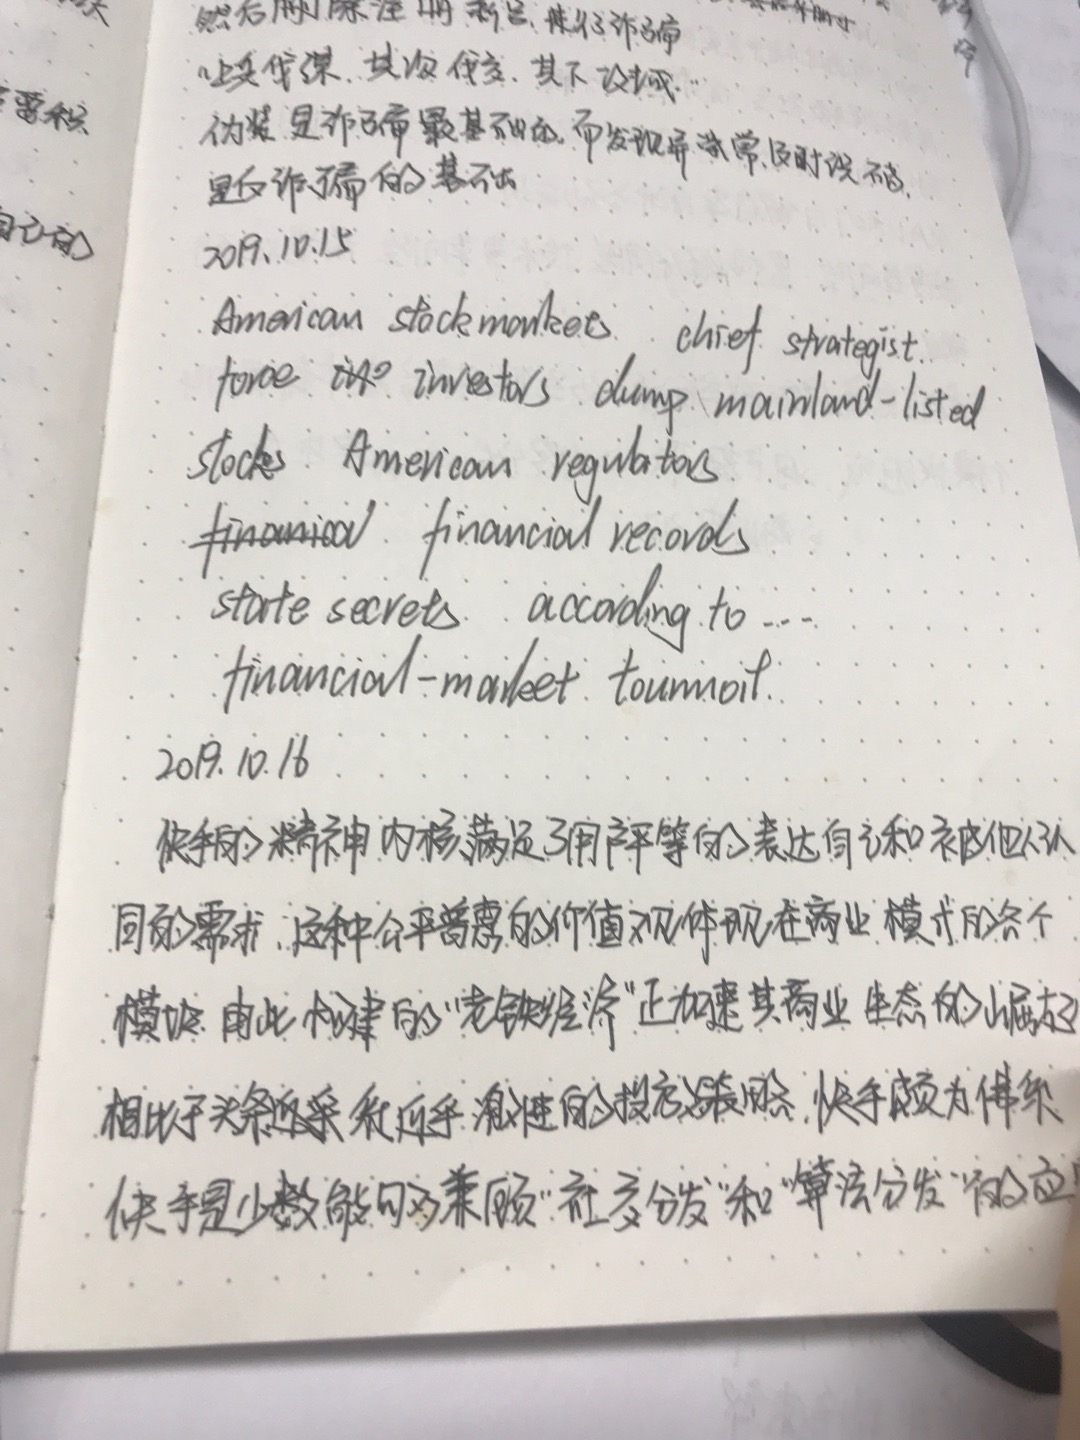 要积
自己的
然后删除注册新号,进行诈骗
上兵伐谋、其次伐交、其下攻城..
伪装是诈骗最基础的,而发现异常,及时识破,
是反诈骗的基础
2019.10.15
American stockmarkets chief strategist
force investors dump mainland-listed
stocks American regulators
financial financial records
state secrets according to ....
financial-market tourmoil.
2019.10.16
快手的精神内核满足了用户平等的表达自己和被他人认
同的需求,这种公平普惠的价值观体现在商业模式的各个
模块.由此构建的"老铁经济"正加速其商业生态的崛起
相比于头条近乎激进的投放策略,快手颇为佛系
快手是少数能够兼顾"社交分发"和"算法分发"的应